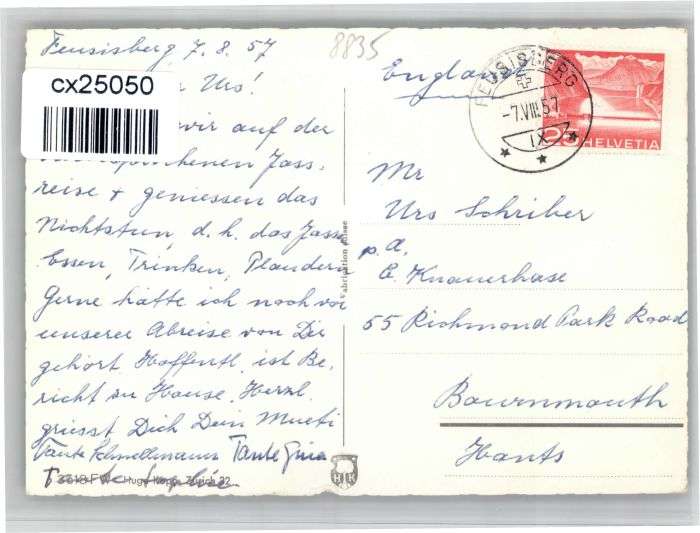 Feusisberg 7.8.57
8835
cx25050
Urs!
wir auf der
Jass-
reise + geniessen das
Nichtstun, d.h. das Jassen
Essen, Trinken, Plaudern
Gerne hätte ich noch vor
unserer Abreise von Dir
gehört. Hoffentl. ist Be-
richt zu Hause. Herzl.
grüsst Dich Dein Mueti
Tante Schnellmann Tante Gina
Tante
3318 F Hugo Kopp, Zürich 32
Fabrikation Suisse
England
FEUSISBERG
-7.VIII.57
IX
25 HELVETIA
Mr
Urs Schriber
p.a.
E. Knauerhase
55 Richmond Park Road
Bournmouth
Hants
HK